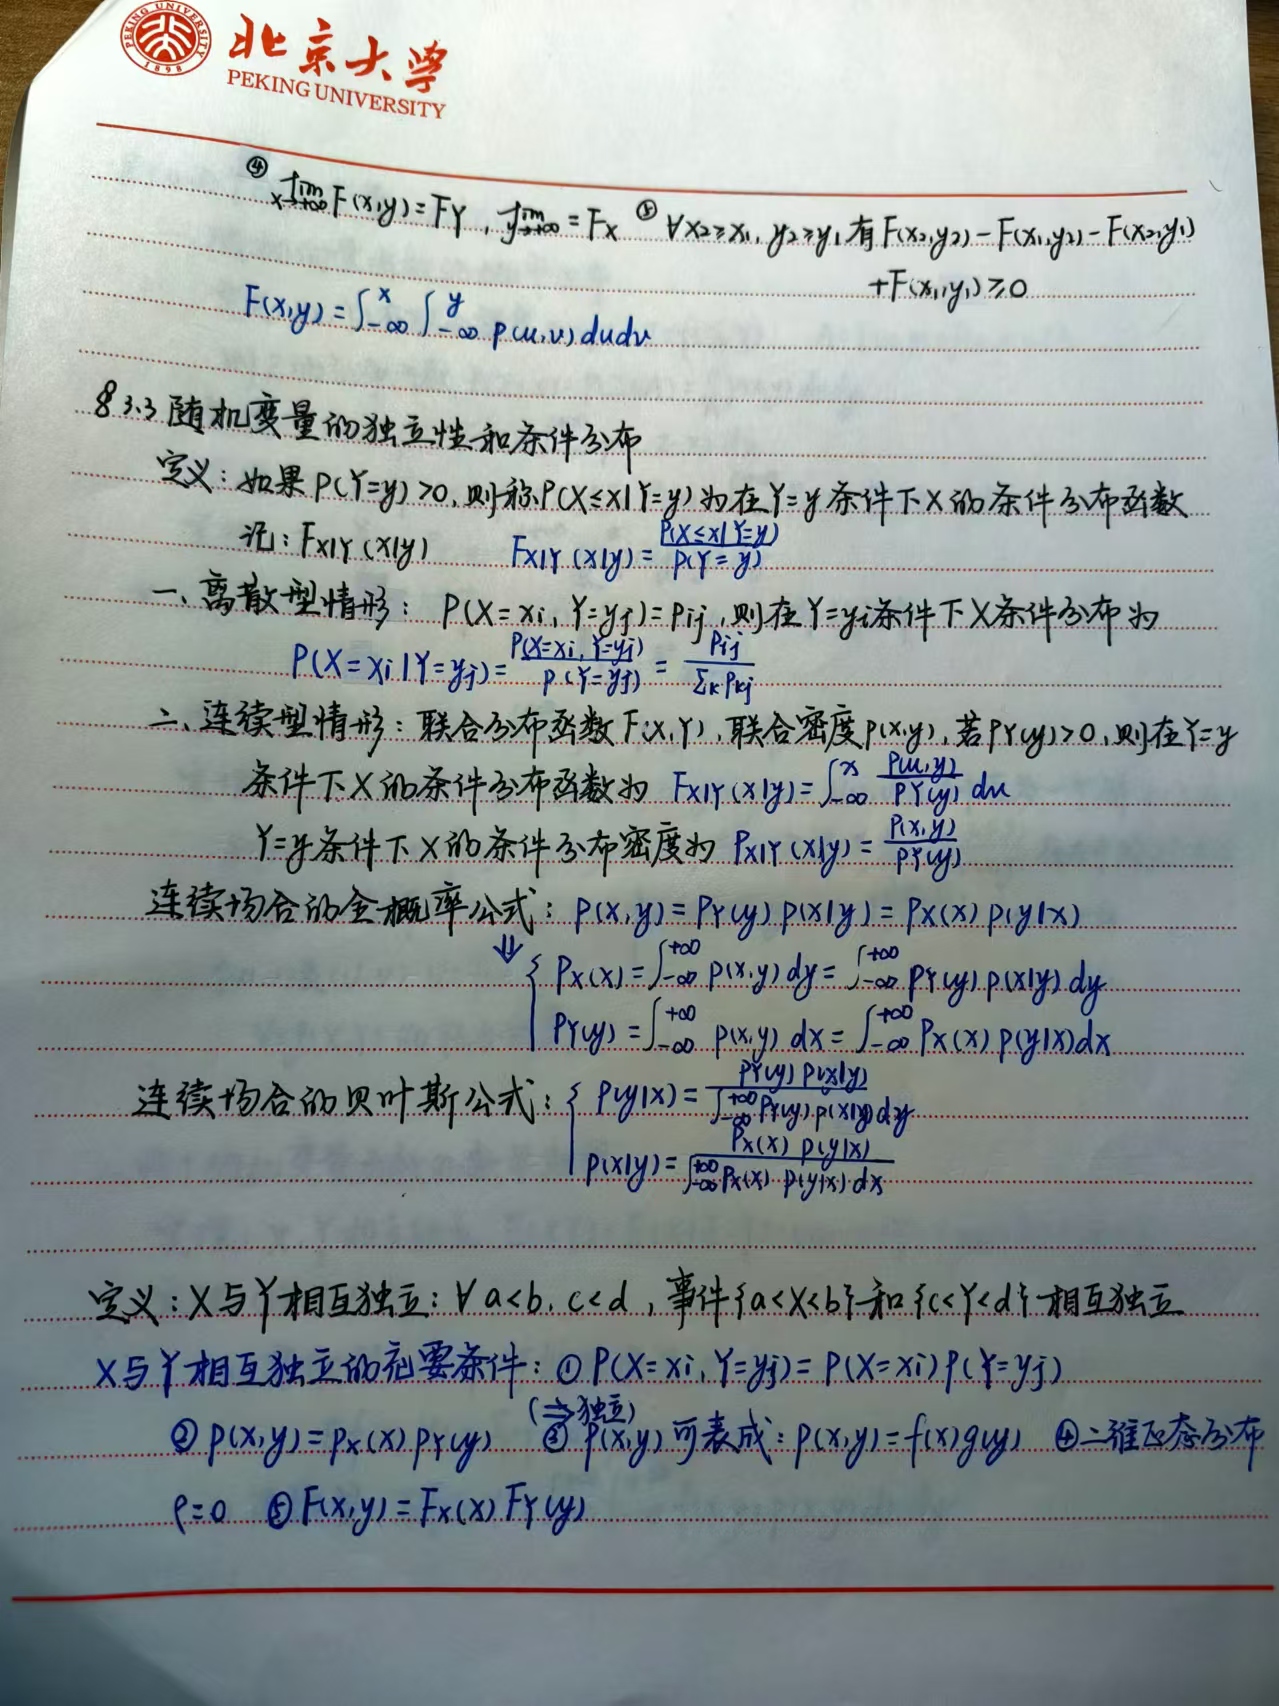 PEKING UNIVERSITY
1898
北京大学
PEKING UNIVERSITY
④ lim x→+∞ F(x,y)=FY, lim y→+∞ =FX ⑤ ∀x2≥x1, y2≥y1 有 F(x2,y2)-F(x1,y2)-F(x2,y1)
+F(x1,y1)≥0
F(x,y)=∫_{-∞}^{x}∫_{-∞}^{y} p(u,v)dudv
§3.3 随机变量的独立性和条件分布
定义:如果P(Y=y)>0,则称P(X≤x|Y=y)为在Y=y条件下X的条件分布函数
记:FX|Y(x|y) FX|Y(x|y)=P(X≤x|Y=y)/P(Y=y)
一、离散型情形:P(X=xi,Y=yj)=Pij,则在Y=yi条件下X条件分布为
P(X=xi|Y=yj)=P(X=xi,Y=yj)/P(Y=yj)=Pij/Σk Pkj
二、连续型情形:联合分布函数F(X,Y),联合密度p(x,y),若PY(y)>0,则在Y=y
条件下X的条件分布函数为 FX|Y(x|y)=∫_{-∞}^{x} p(u,y)/PY(y) du
Y=y条件下X的条件分布密度为 PX|Y(x|y)=p(x,y)/PY(y)
连续场合的全概率公式:p(x,y)=PY(y)p(x|y)=PX(x)p(y|x)
⇓ { PX(x)=∫_{-∞}^{+∞} p(x,y)dy=∫_{-∞}^{+∞} PY(y)p(x|y)dy
PY(y)=∫_{-∞}^{+∞} p(x,y)dx=∫_{-∞}^{+∞} PX(x)p(y|x)dx
连续场合的贝叶斯公式:{ p(y|x)=PY(y)p(x|y)/∫_{-∞}^{+∞} PY(y)p(x|y)dy
p(x|y)=PX(x)p(y|x)/∫_{-∞}^{+∞} PX(x)p(y|x)dx
定义:X与Y相互独立:∀a<b,c<d,事件{a<X<b}和{c<Y<d}相互独立
X与Y相互独立的充要条件:① P(X=xi,Y=yj)=P(X=xi)P(Y=yj)
(⇒独立)
② p(x,y)=PX(x)PY(y) ③ p(x,y)可表成:p(x,y)=f(x)g(y) ④二维正态分布
ρ=0 ⑤ F(x,y)=FX(x)FY(y)